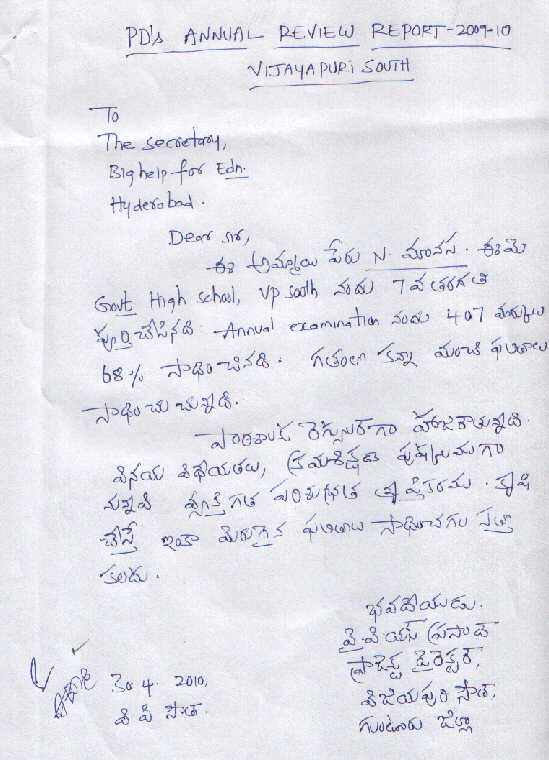 PD's ANNUAL REVIEW REPORT-2009-10
VIJAYAPURI SOUTH
To
The secretary,
Big help for Edn.
Hyderabad.
Dear sir,
ఈ అమ్మాయి పేరు N. మానస. ఈమె
Govt High school, VP south నందు 7వ తరగతి
పూర్తి చేసినది. Annual examination నందు 407 మార్కులు
68% సాధించినది. గతంలో కన్నా మంచి ఫలితాలు
సాధించుచున్నది.
పాఠశాలకు రెగ్యులర్‌గా హాజరౌతున్నది.
వినయ విధేయతలు, క్రమశిక్షణ పుష్కలముగా
వున్నవి వ్యక్తిగత పరిశుభ్రత తృప్తికరము. కృషి
చేస్తే ఇంకా మెరుగైన ఫలితాలు సాధించగల సత్తా
కలదు.
భవదీయుడు.
వై వి యస్ ప్రసాద్
ప్రాజెక్ట్ డైరెక్టర్,
విజయపురి సౌత్,
గుంటూరు జిల్లా
30 4. 2010,
వి పి సౌత్.